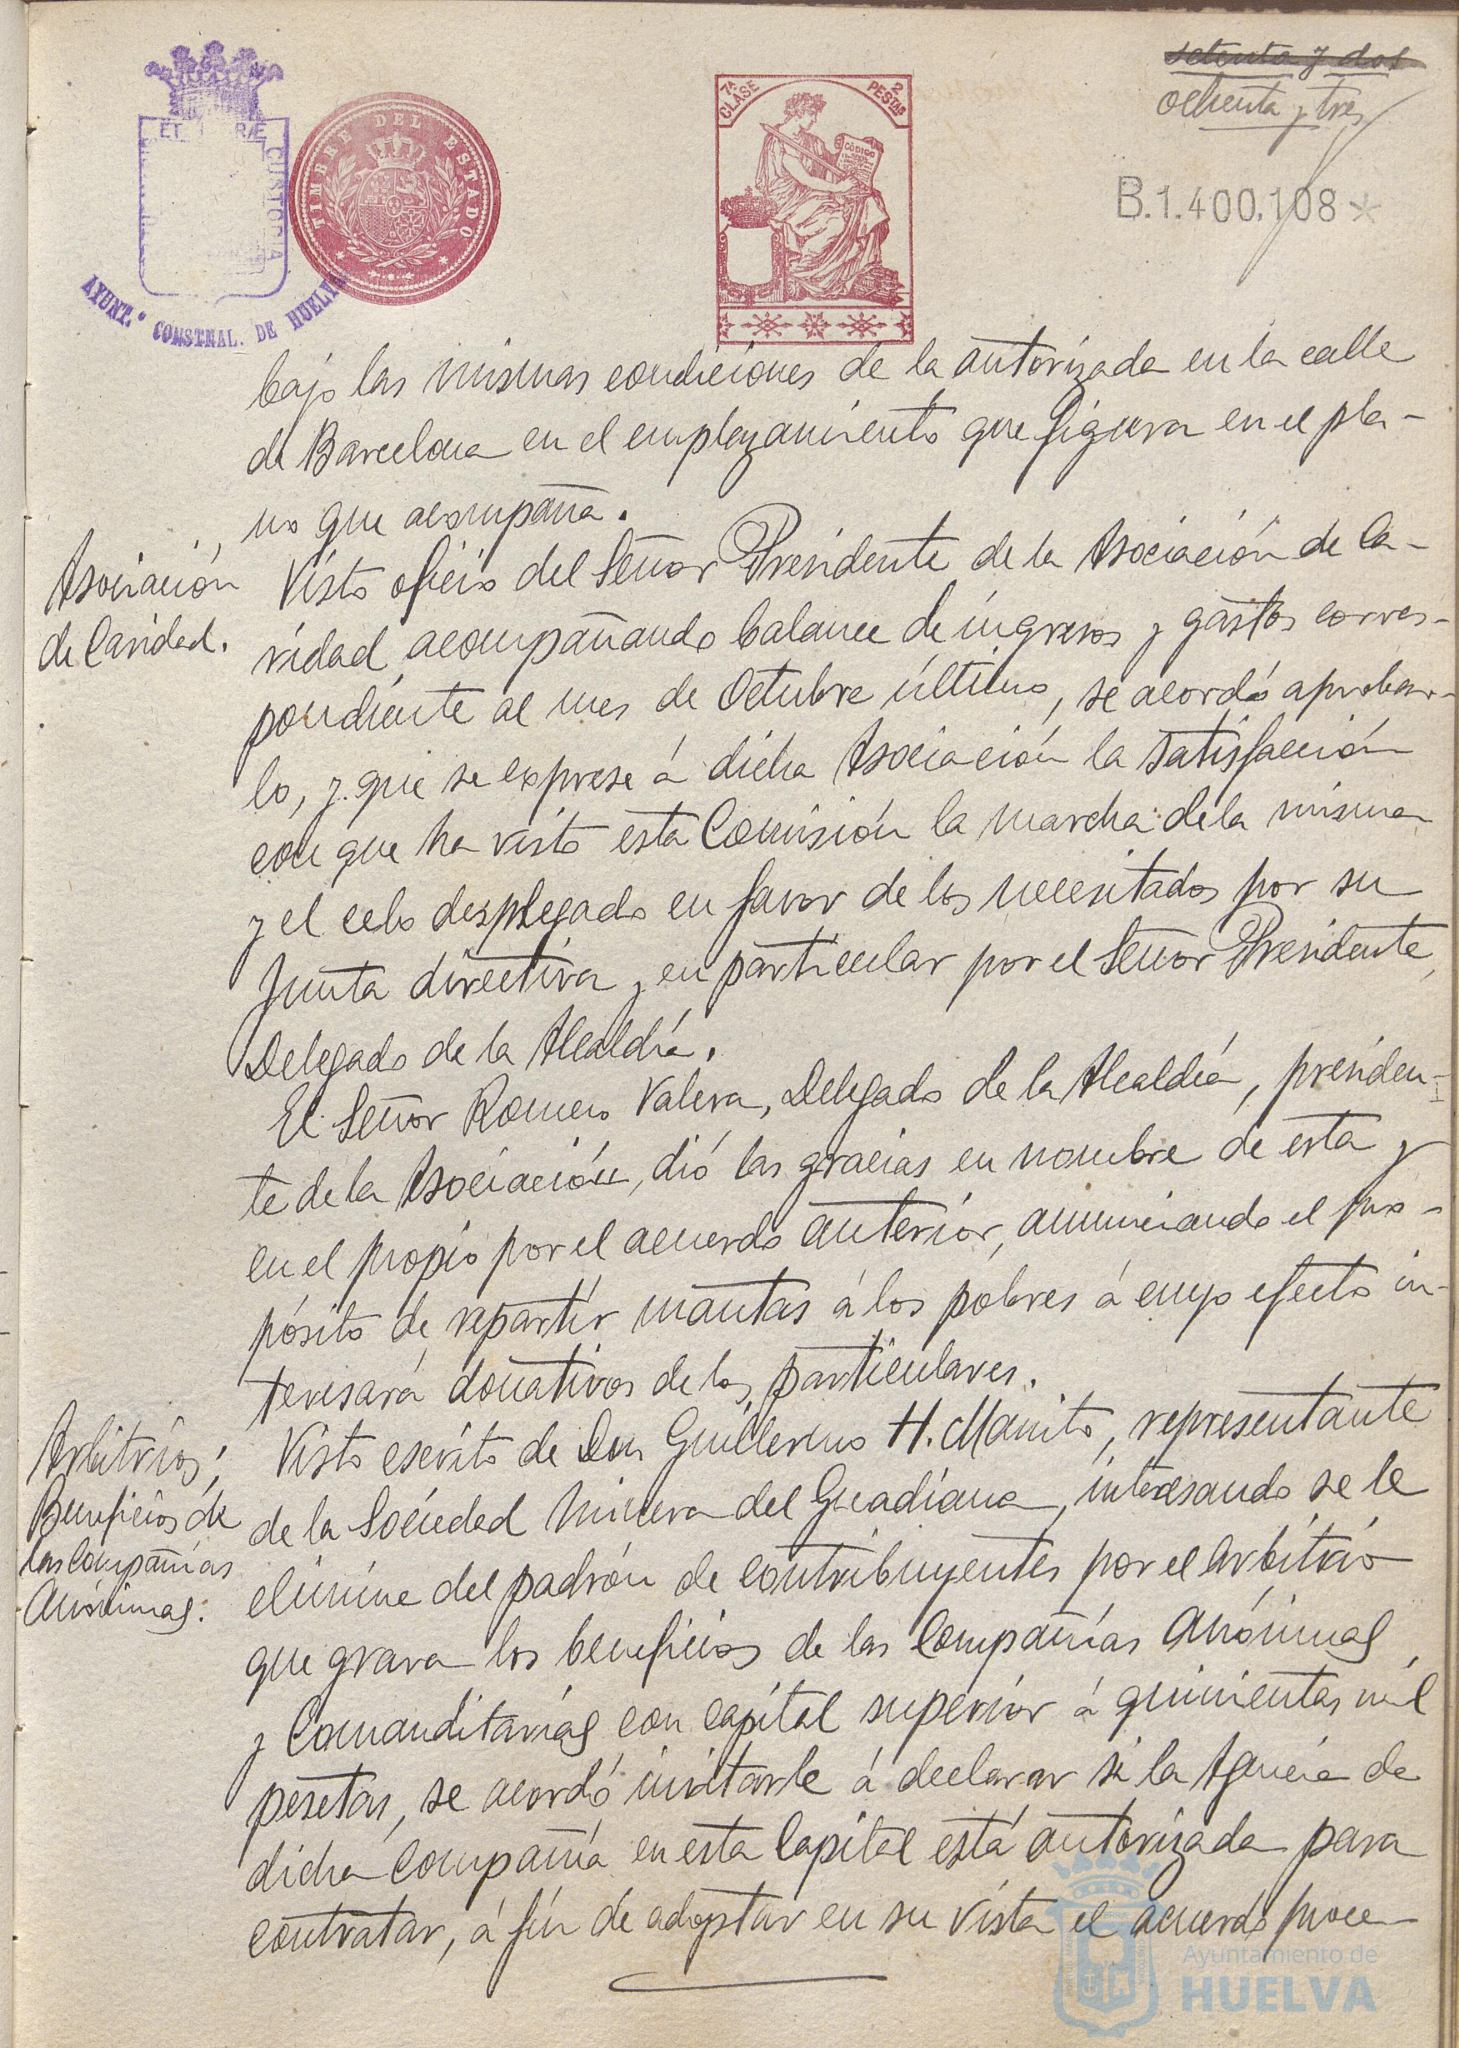 setenta y dos
ochenta y tres
ET TERRÆ CUSTODIA
AYUNT.º CONSTNAL. DE HUELVA
TIMBRE DEL ESTADO
7ª CLASE
2 PESTAS
CÓDIGO
B.1.400.108*
bajo las mismas condiciones de la autorizada en la calle
de Barcelona en el emplazamiento que figura en el pla-
no que acompaña.
Asociación
de Caridad.
Visto oficio del Señor Presidente de la Asociación de Ca-
ridad acompañando balance de ingresos y gastos corres-
pondiente al mes de Octubre último, se acordó aprobar-
lo, y que se exprese á dicha Asociación la satisfacción
con que ha visto esta Comisión la marcha de la misma
y el celo desplegado en favor de los necesitados por su
Junta directiva y en particular por el Señor Presidente,
Delegado de la Alcaldía.
El Señor Romero Valera, Delegado de la Alcaldía, presiden-
te de la Asociación, dió las gracias en nombre de esta y
en el propio por el acuerdo anterior, anunciando el pro-
pósito de repartir mantas á los pobres á cuyo efecto in-
teresará donativos de los particulares.
Arbitrios;
Beneficios de
las Compañías
Anónimas.
Visto escrito de Don Guillermo H. Manito, representante
de la Sociedad Minera del Guadiana, interesando se le
elimine del padrón de contribuyentes por el arbitrio
que grava los beneficios de las Compañías Anónimas
y Comanditarias con capital superior á quinientas mil
pesetas, se acordó invitarle á declarar si la Agencia de
dicha Compañía en esta Capital está autorizada para
contratar, á fin de adoptar en su vista el acuerdo proce-
Ayuntamiento de
HUELVA